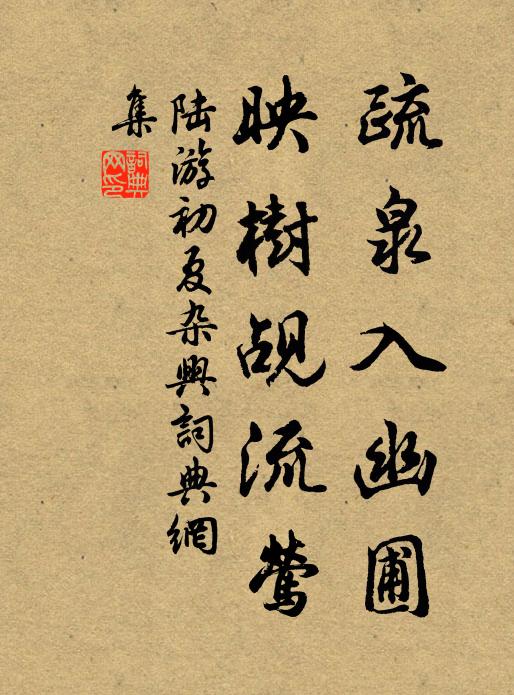 疏泉入幽圃
映樹覘流鶯
陸游初夏杂興詞典網
集
詞典
网印